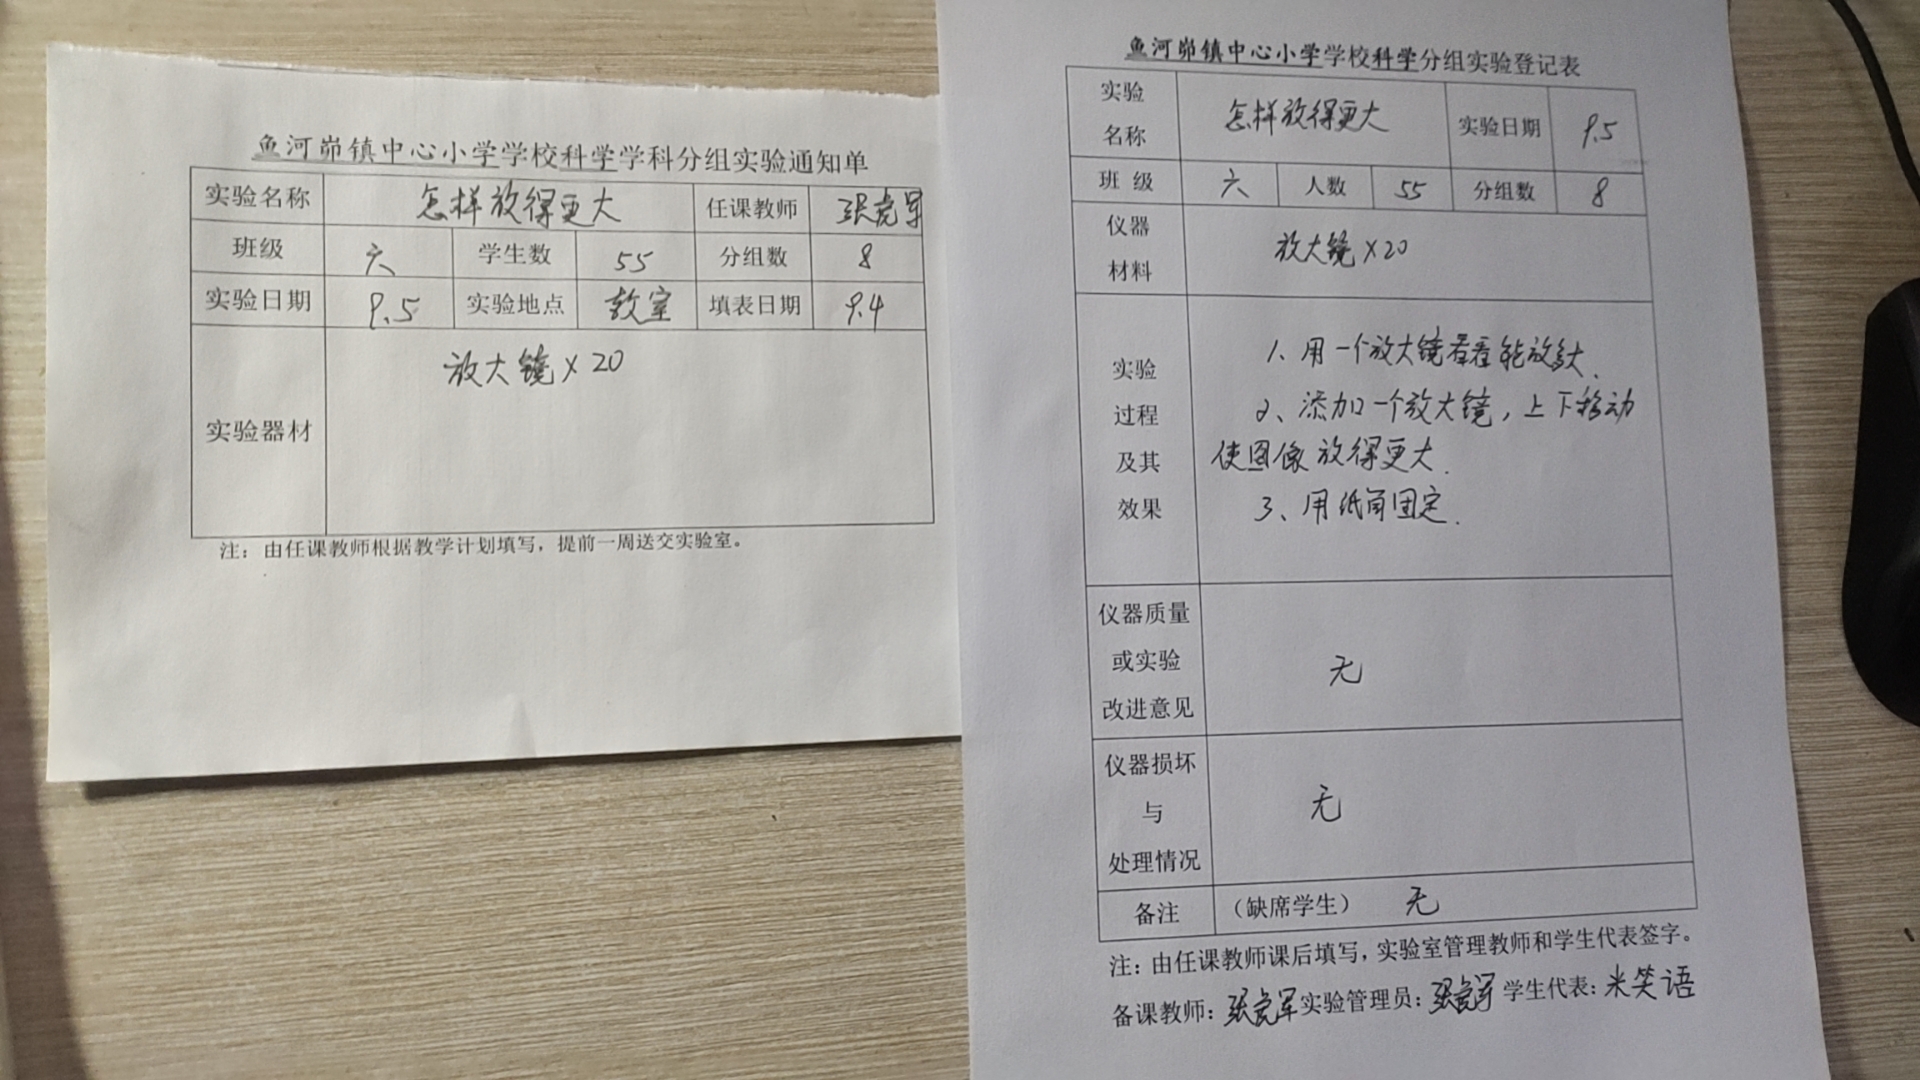 鱼河峁镇中心小学学校科学学科分组实验通知单
实验名称 怎样放得更大 任课教师 张亮军
班级 六 学生数 55 分组数 8
实验日期 9.5 实验地点 教室 填表日期 9.4
实验器材 放大镜×20
注：由任课教师根据教学计划填写，提前一周送交实验室。
鱼河峁镇中心小学学校科学分组实验登记表
实验名称 怎样放得更大 实验日期 9.5
班级 六 人数 55 分组数 8
仪器材料 放大镜×20
实验过程及其效果
1、用一个放大镜看看能放多大.
2、添加一个放大镜，上下移动
使图像放得更大.
3、用纸筒固定.
仪器质量或实验改进意见 无
仪器损坏与处理情况 无
备注 （缺席学生） 无
注：由任课教师课后填写，实验室管理教师和学生代表签字。
备课教师：张亮军 实验管理员：张亮军 学生代表：米笑语